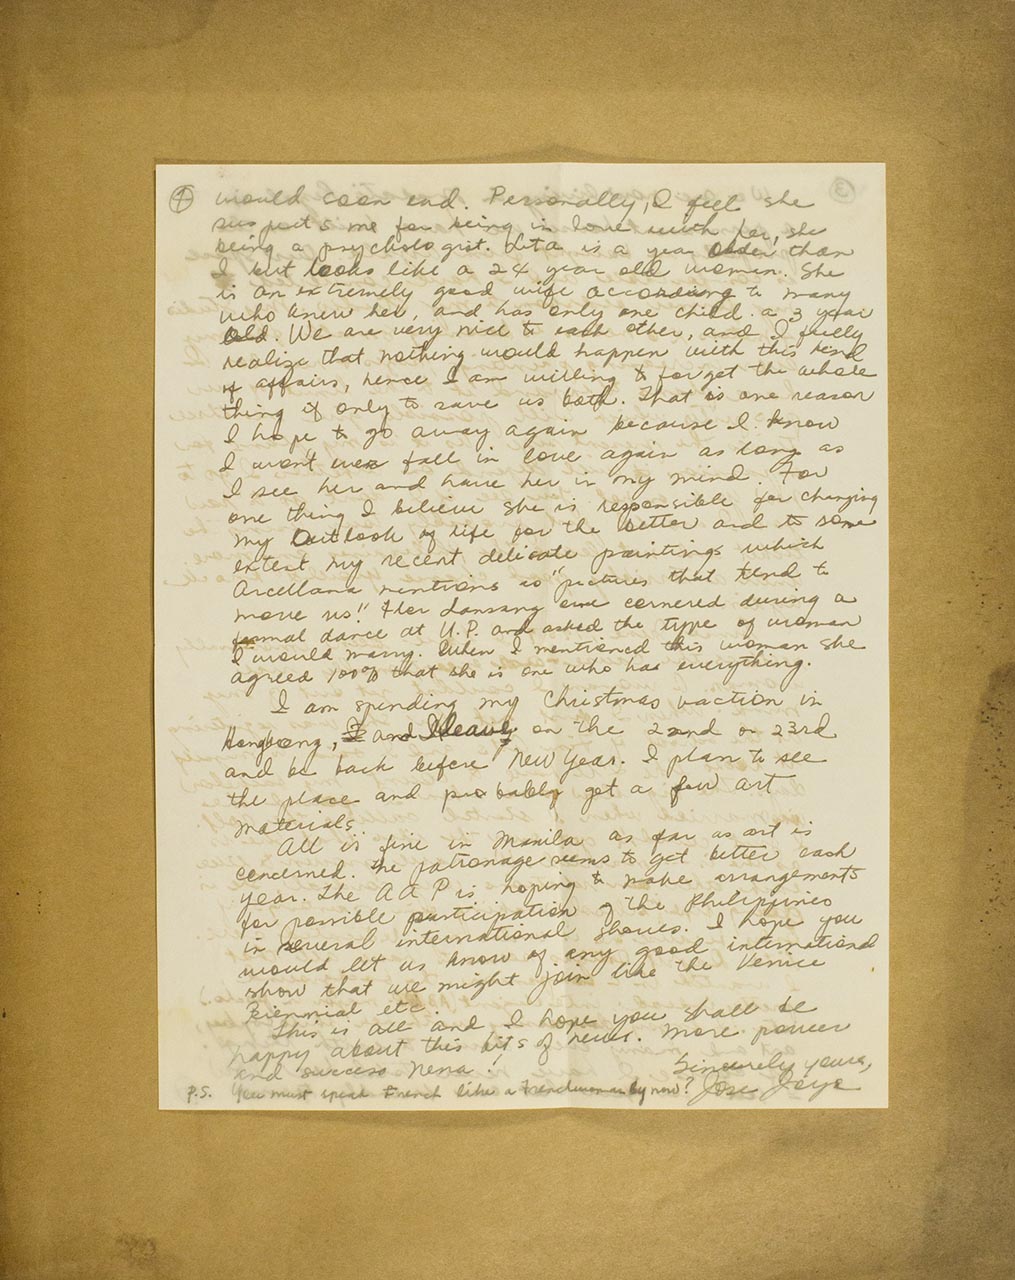 4 would soon end. Personally, I feel she
suspects me for being in love with her, she
being a psychologist. Lita is a year older than
I but looks like a 24 year old woman. She
is an extremely good wife according to many
who knew her, and has only one child. a 3 year
old. We are very nice to each other, and I fully
realize that nothing would happen with this kind
of affairs, hence I am willing to forget the whole
thing if only to save us both. That is one reason
I hope to go away again because I know
I won't ever fall in love again as long as
I see her and have her in my mind. For
one thing I believe she is responsible for changing
my outlook of life for the better and to some
extent my recent delicate paintings which
Arcellana mentions as "pictures that tend to
move us!" Flor Lansang one cornered during a
formal dance at U.P. and asked the type of woman
I would marry. When I mentioned this woman she
agreed 100% that she is one who has everything.
I am spending my Christmas vaction in
Hongkong, I and I leave on the 22nd or 23rd
and be back before New Year. I plan to see
the place and probably get a few art
materials.
All is fine in Manila as far as art is
concerned. the patronage seems to get better each
year. The AAP is hoping to make arrangements
for possible participation of the Philippines
in several international shows. I hope you
would let us know of any good international
show that we might join like the Venice
Biennial etc.
This is all and I hope you shall be
happy about this bits of news. More power
and success Nena!
Sincerely yours,
Jose Joya
P.S. You must speak French like a Frenchwoman by now?